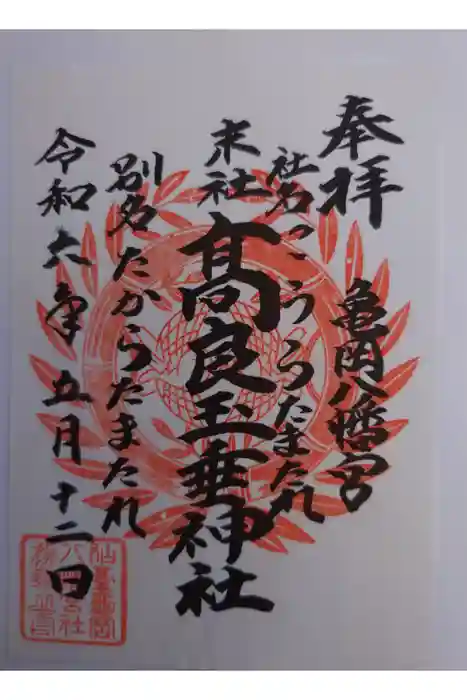 奉拝
亀岡八幡宮
社名こうらたまたれ
末社
髙良玉垂神社
別名たからたまたれ
令和六年五月十二日